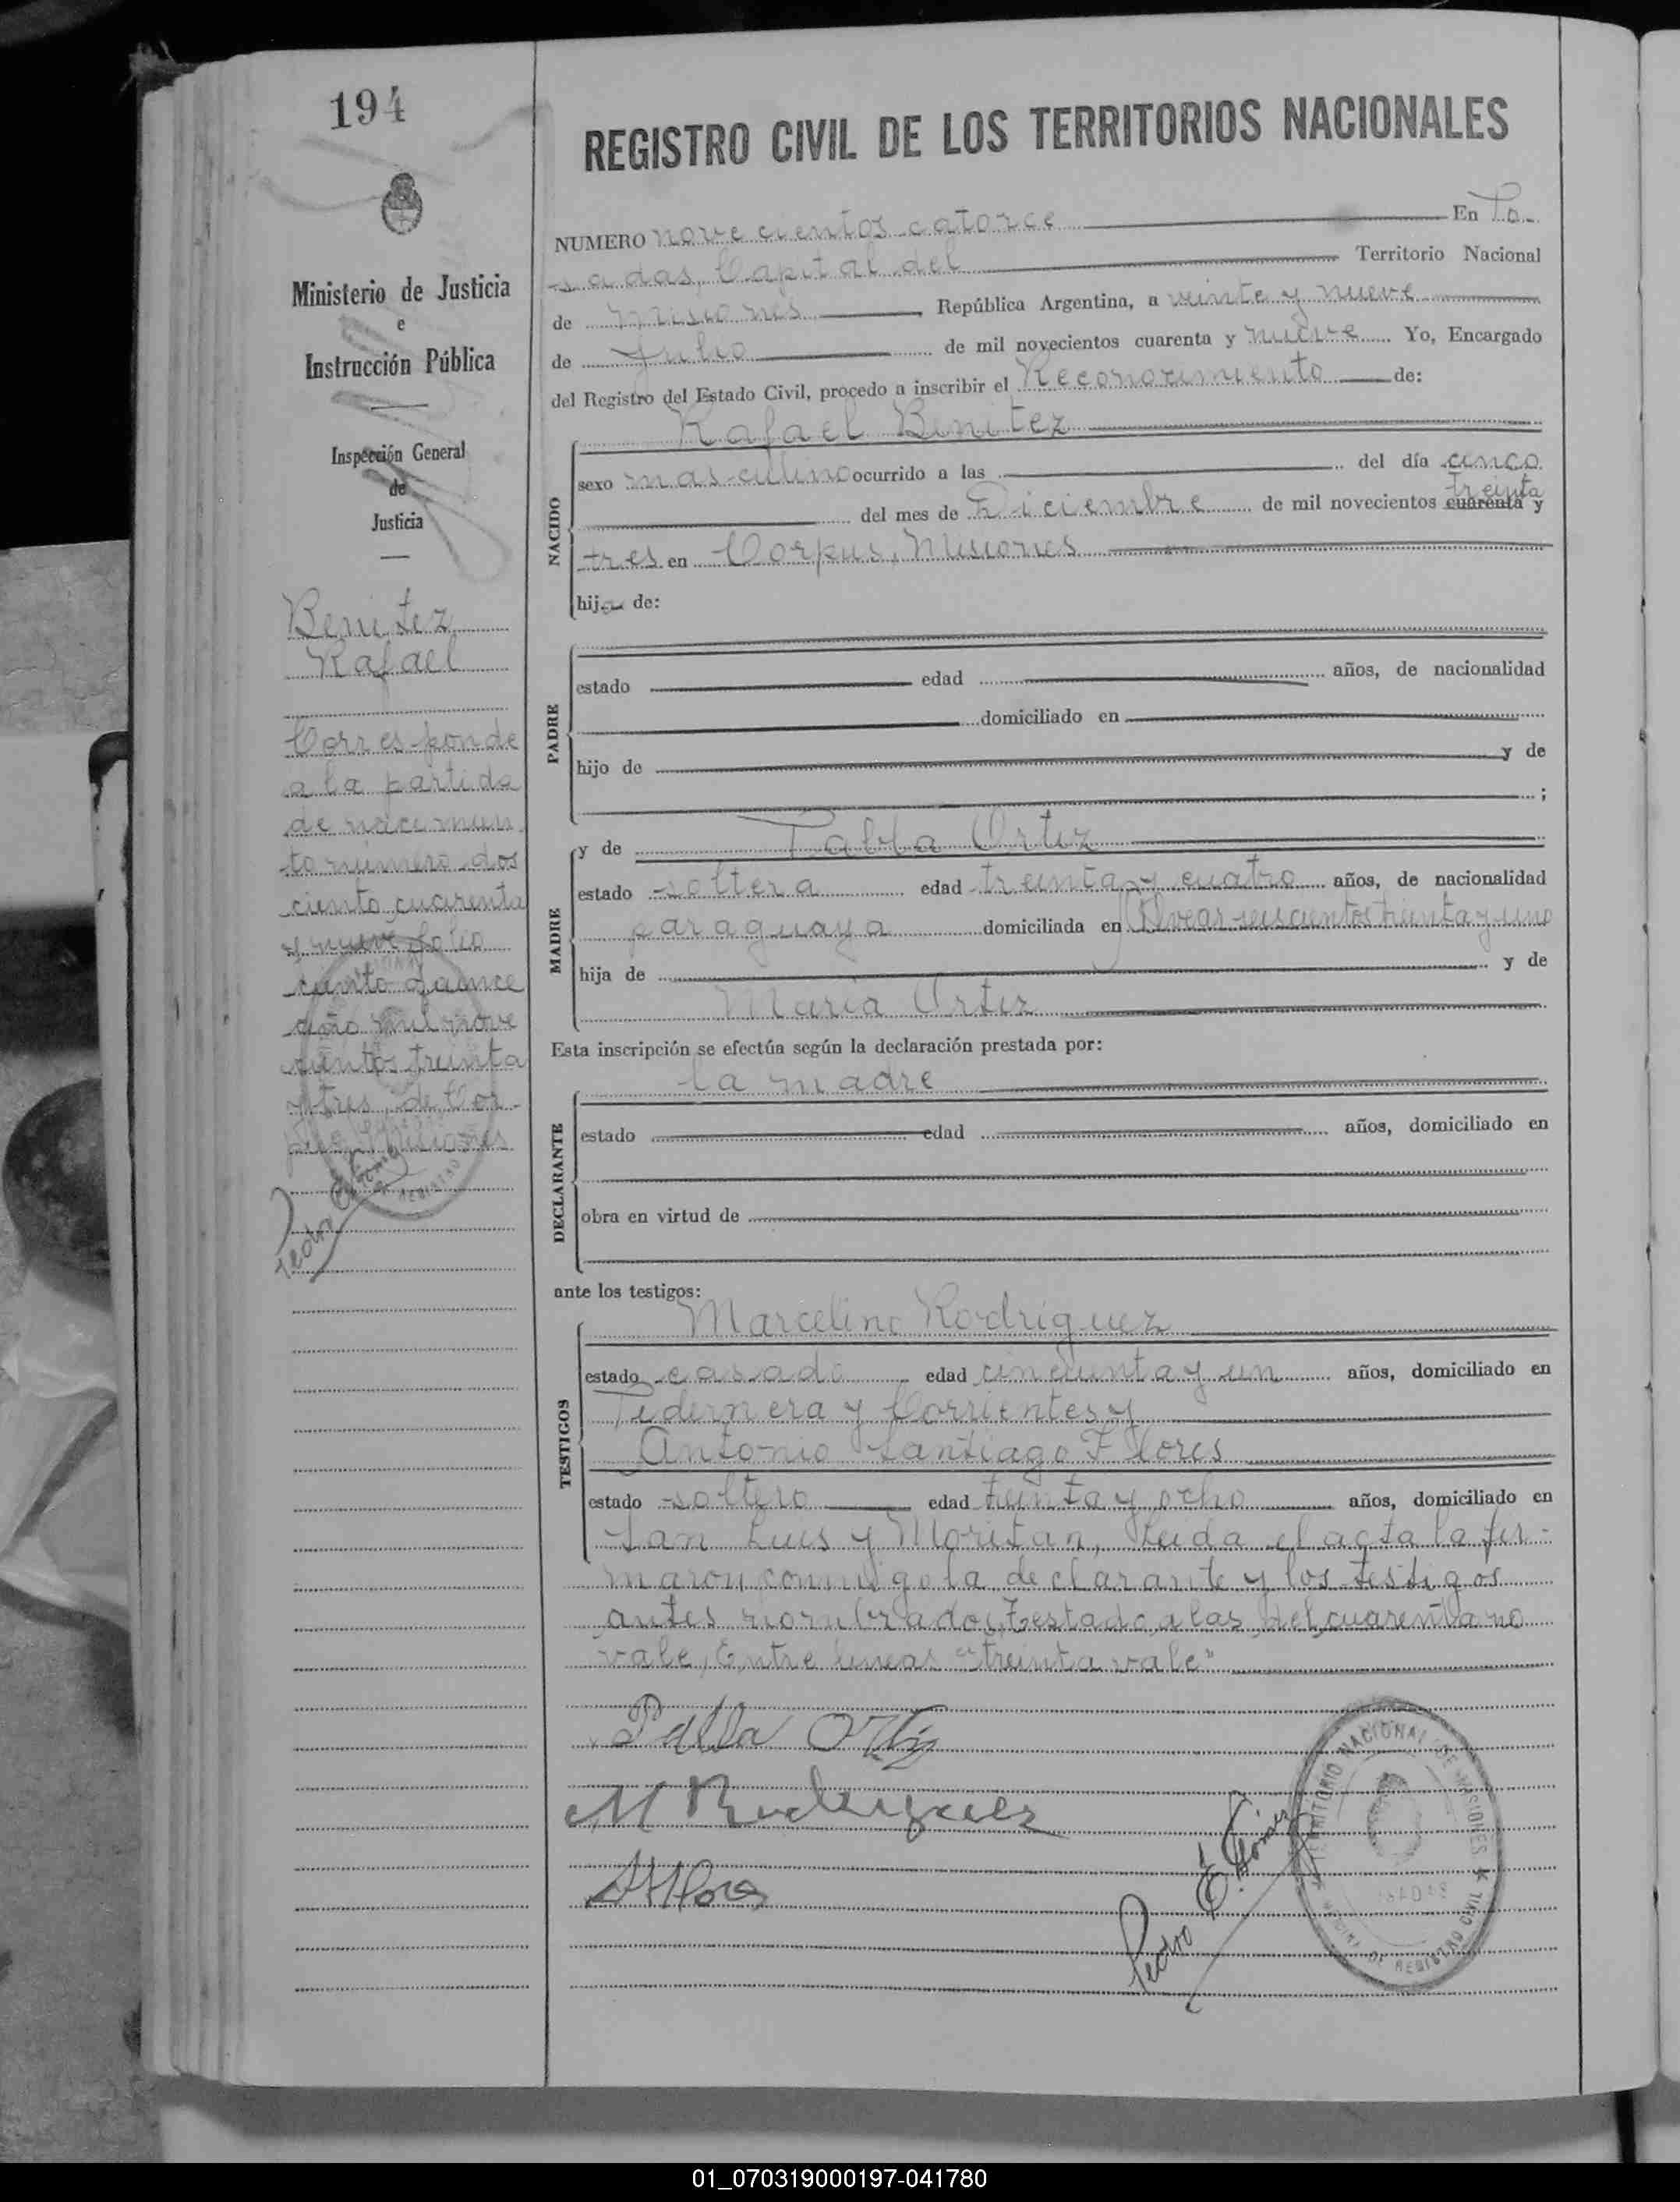 194
REGISTRO CIVIL DE LOS TERRITORIOS NACIONALES
Ministerio de Justicia
e
Instrucción Pública
Inspección General
de
Justicia
Benitez
Rafael
Corresponde
a la partida
de nacimien
to número dos
ciento cuarenta
y nueve folio
ciento quince
año mil nove
cientos treinta
y tres, de Cor-
pus, Misiones
Pedro E. Gómez
NUMERO novecientos catorce En Po-
sadas, Capital del Territorio Nacional
de Misiones República Argentina, a veinte y nueve
de Julio de mil novecientos cuarenta y nueve Yo, Encargado
del Registro del Estado Civil, procedo a inscribir el Reconocimiento de:
Rafael Benitez
NACIDO
sexo masculino ocurrido a las del día cinco
treinta
del mes de Diciembre de mil novecientos cuarenta y
tres en Corpus, Misiones
hij de:
PADRE
estado edad años, de nacionalidad
domiciliado en
hijo de y de
;
MADRE
y de Pabla Ortiz
estado soltera edad treinta y cuatro años, de nacionalidad
paraguaya domiciliada en Alvear seiscientos treinta y uno
hija de y de
Maria Ortiz
Esta inscripción se efectúa según la declaración prestada por:
la madre
DECLARANTE
estado edad años, domiciliado en
obra en virtud de
ante los testigos:
Marcelino Rodriguez
TESTIGOS
estado casado edad cincuenta y un años, domiciliado en
Pedernera y Corrientes y
Antonio Santiago Flores
estado soltero edad treinta y ocho años, domiciliado en
San Luis y Moritan, Leida el acta la fir-
maron conmigo la declarante y los testigos
antes nombrados, Testado, a las, del, cuarenta no
vale, Entre lineas "treinta vale"
Pabla Ortiz
M Rodriguez
A S Flores
Pedro E. Gómez
TERRITORIO NACIONAL DE MISIONES
POSADAS
OFICINA DE REGISTRO CIVIL
01_070319000197-041780